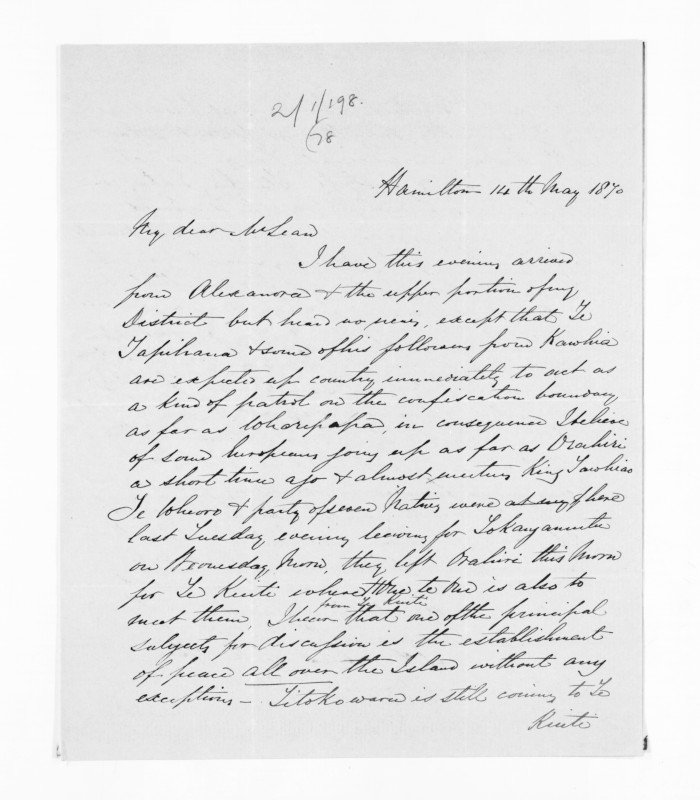 2/1/198.
/78
Hamilton 14th May 1870
My dear McLean
I have this evening arrived
from Alexandra & the upper portion of my
District but heard no news, except that Te
Tapihana & some of his followers from Kawhia
are expected up country immediately to act as
a kind of patrol on the confiscation boundary
as far as Wharepapa, in consequence I believe
of some Europeans going up as far as Orahiri
a short time ago & almost meeting King Tawhiao
Te Wheoro & party of seven Natives were at my here
last Tuesday evening leaving for Tokanganmutu
on Wednesday Morn, they left Orahiri this Morn
for Te Kuiti where Hone te One is also to
meet them, I hear from Te Kuiti that one of the principal
subjects for discussion is the establishment
of peace all over the Island without any
exceptions - Titokowaru is still coming to Te
Kuiti